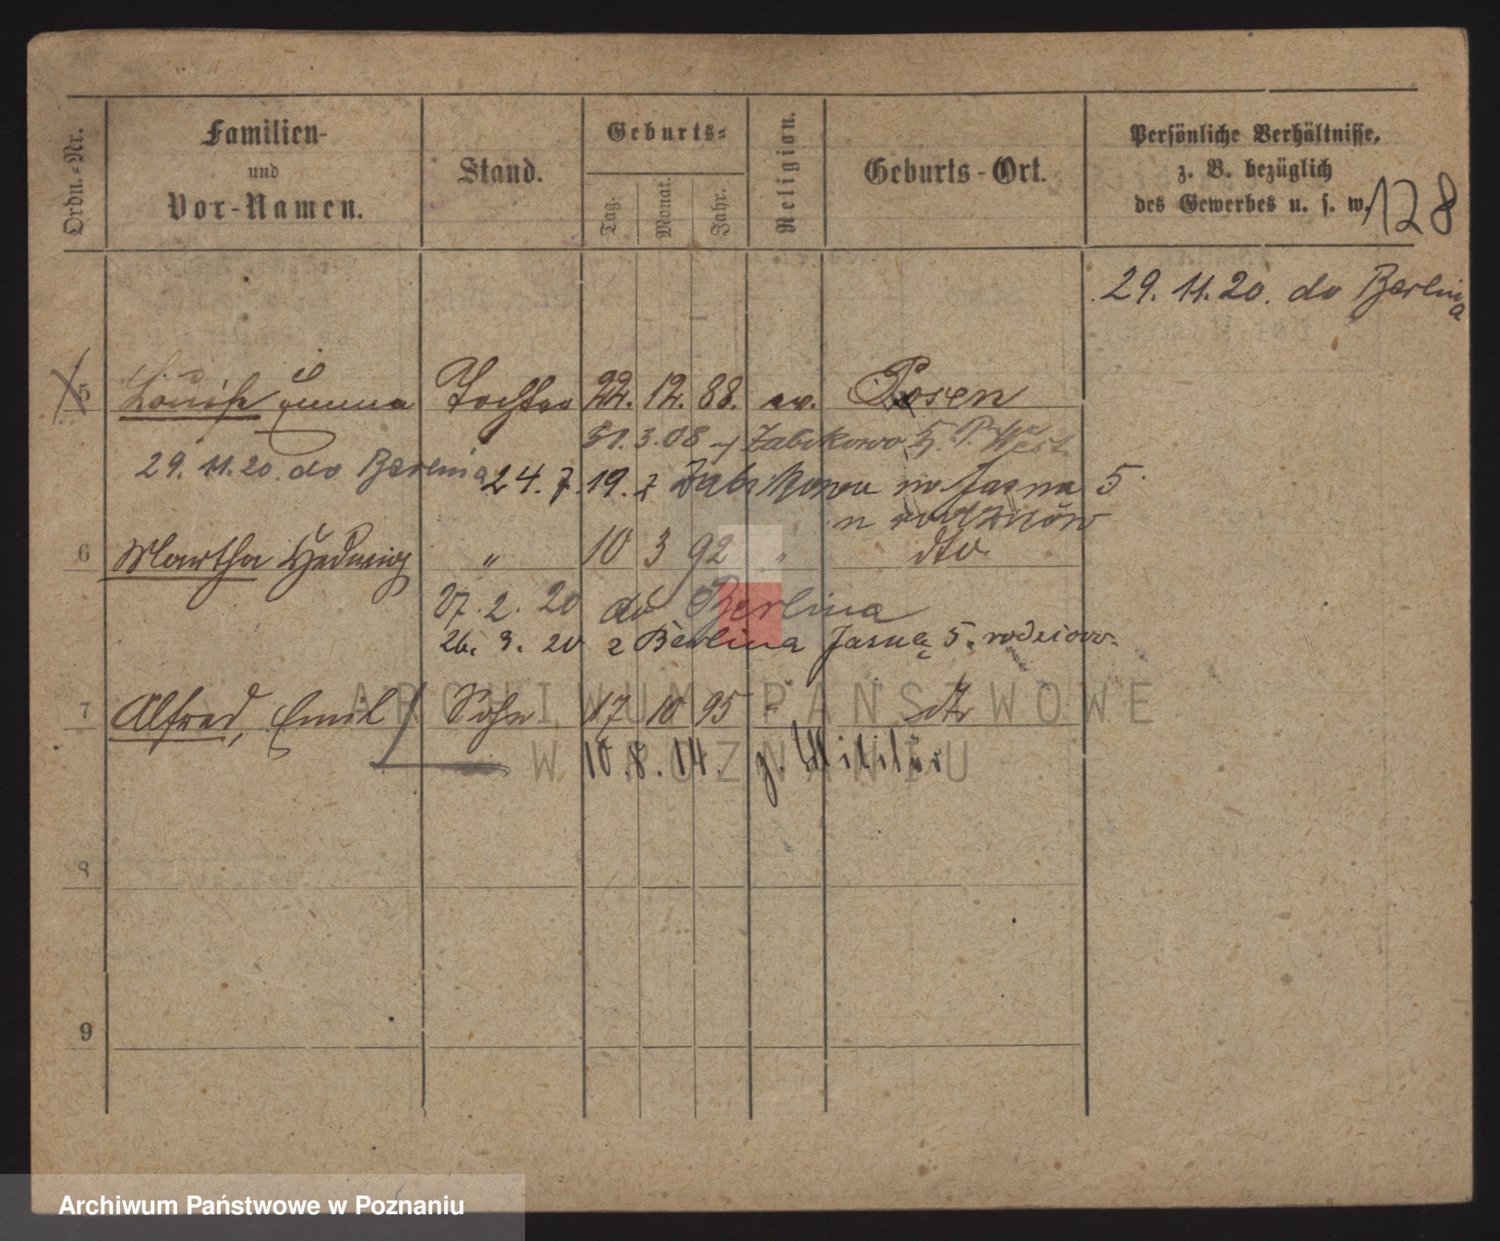 Ordn.-Nr.
Familien-
und
Vor-Namen.
Stand.
Geburts-
Tag.
Monat.
Jahr.
Religion.
Geburts-Ort.
Persönliche Verhältnisse,
z. B. bezüglich
des Gewerbes u. s. w.
128
29. 11. 20. do Berlina
5 Louise Emma Tochter 22. 12. 88. ev. Posen
31. 3. 08 Żabikowo
29. 11. 20. do Berlina
24. 7. 19. z Żabikowa Jasna 5
u rodziców
6 Martha Hedwig " 10 3 92 " dto
07. 2. 20 do Berlina
26. 3. 20 z Berlina Jasna 5.
7 Alfred, Emil Sohn 17 10 95 " dto
10. 8. 14. z. Militär
8
9
ARCHIWUM PAŃSTWOWE
W POZNANIU
Archiwum Państwowe w Poznaniu